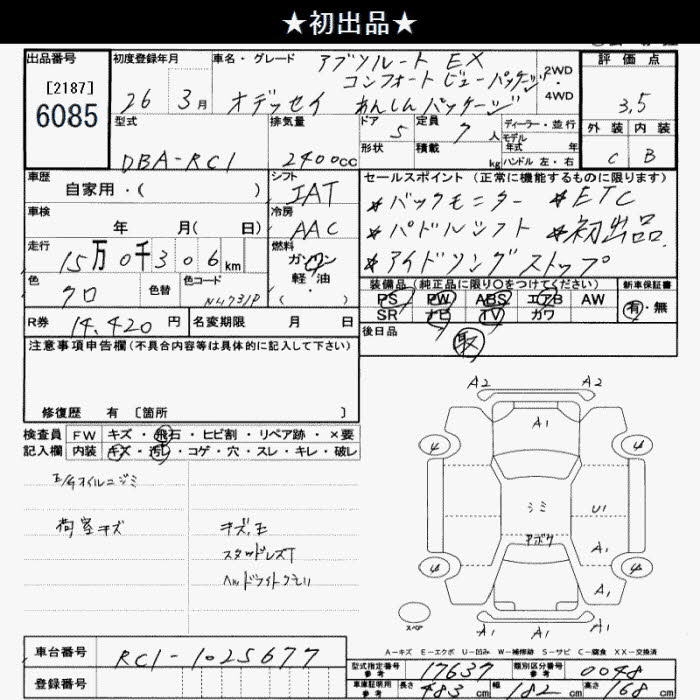 ★初出品★
出品番号
[2187]
6085
初度登録年月
26 3月
車名・グレード
アブソルート EX
コンフォート ビューパッケージ
オデッセイ あんしんパッケージ
2WD
・
4WD
評価点
3,5
外装 内装
C B
型式
DBA-RC1
排気量
2400cc
ドア 5
定員 7人
形状
積載 kg
ディーラー・並行
モデル年式 年
ハンドル 左・右
車歴
自家用・( )
シフト
IAT
車検
年 月( 日)
冷房
AAC
走行
15万0千306km
燃料
ガソリン
軽・油
・( )
色
クロ
色替
色コード
NH731P
R券 14,420円
名変期限 月 日
セールスポイント (正常に機能するものに限ります)
*バックモニター *ETC
*パドルシフト *初出品
*アイドリングストップ
装備品(純正品に限り○をつけてください)
PS PW ABS エアB AW
SR ナビ TV カワ
新車保証書
有・無
後日品
取
注意事項申告欄(不具合内容等は具体的に記入して下さい)
修復歴 有 〔箇所 〕
検査員記入欄
FW キズ・飛石・ヒビ割・リペア跡・×要
内装 キズ・汚レ・コゲ・穴・スレ・キレ・破レ
E/Gオイルニジミ
荷室キズ
キズ,エ
スタッドレスT
ヘッドライトクモリ
A2 A2
A1
4 4
シミ U1
デボク A1
4 4
A1
スペア
A1 A1
A-キズ E-エクボ U-凹み W-補修跡 S-サビ C-腐食 XX-交換済
車台番号 RC1-1025677
登録番号
型式指定番号 参考 17637
類別区分番号 参考 0048
車庫証明用 参考 長さ 483cm 幅 182cm 高さ 168cm